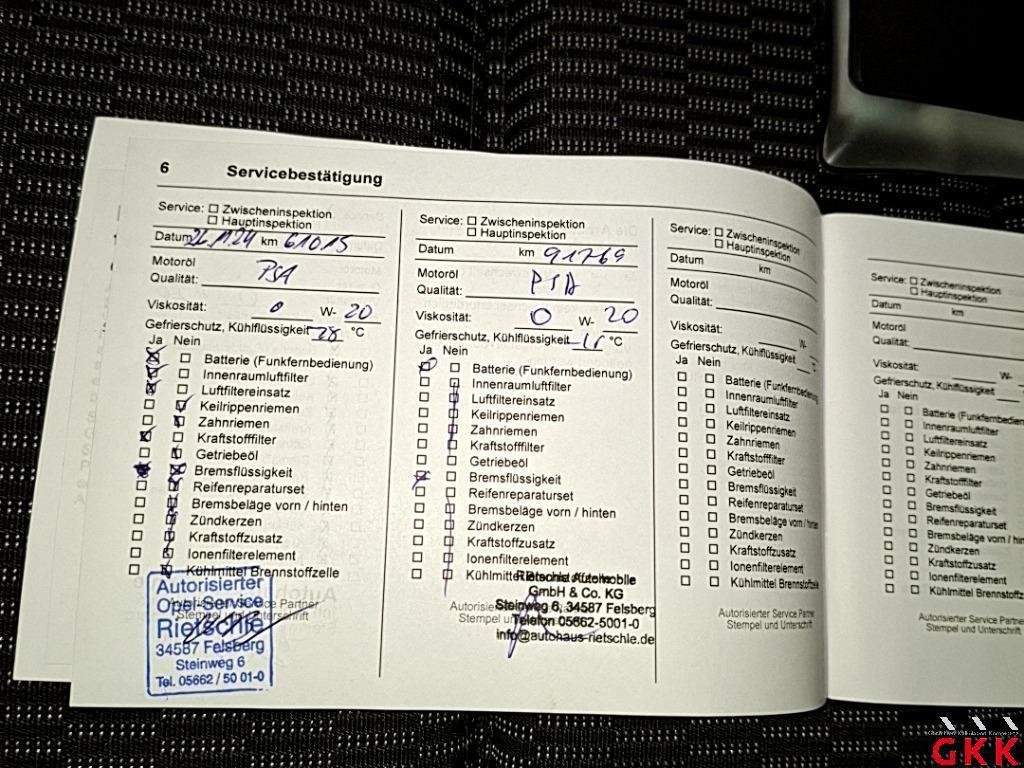 6 Servicebestätigung
Service: Zwischeninspektion
Hauptinspektion
Datum km 61015
Motoröl
Qualität: PSA
Viskosität: 0 W- 20
Gefrierschutz, Kühlflüssigkeit -28 °C
Ja Nein
Batterie (Funkfernbedienung)
Innenraumluftfilter
Luftfiltereinsatz
Keilrippenriemen
Zahnriemen
Kraftstofffilter
Getriebeöl
Bremsflüssigkeit
Reifenreparaturset
Bremsbeläge vorn / hinten
Zündkerzen
Kraftstoffzusatz
Ionenfilterelement
Kühlmittel Brennstoffzelle
Autorisierter Service Partner
Stempel und Unterschrift
Autorisierter
Opel-Service
Rietschle
34587 Felsberg
Steinweg 6
Tel. 05662 / 50 01-0
Service: Zwischeninspektion
Hauptinspektion
Datum km 91769
Motoröl
Qualität: PSA
Viskosität: 0 W- 20
Gefrierschutz, Kühlflüssigkeit °C
Ja Nein
Batterie (Funkfernbedienung)
Innenraumluftfilter
Luftfiltereinsatz
Keilrippenriemen
Zahnriemen
Kraftstofffilter
Getriebeöl
Bremsflüssigkeit
Reifenreparaturset
Bremsbeläge vorn / hinten
Zündkerzen
Kraftstoffzusatz
Ionenfilterelement
Kühlmittel
Rietschle Automobile
GmbH & Co. KG
Steinweg 6, 34587 Felsberg
Telefon 05662-5001-0
info@autohaus-rietschle.de
Service: Zwischeninspektion
Hauptinspektion
Datum km
Motoröl
Qualität:
Viskosität: W-
Gefrierschutz, Kühlflüssigkeit °C
Ja Nein
Batterie (Funkfernbedienung
Innenraumluftfilter
Luftfiltereinsatz
Keilrippenriemen
Zahnriemen
Kraftstofffilter
Getriebeöl
Bremsflüssigkeit
Reifenreparaturset
Bremsbeläge vorn / hinten
Zündkerzen
Kraftstoffzusatz
Ionenfilterelement
Kühlmittel Brennstoffzelle
Autorisierter Service Partner
Stempel und Unterschrift
Service: Zwischeninspektion
Hauptinspektion
Datum km
Motoröl
Qualität:
Viskosität: W-
Gefrierschutz, Kühlflüssigkeit
Ja Nein
Batterie (Funkfernbedien
Innenraumluftfilter
Luftfiltereinsatz
Keilrippenriemen
Zahnriemen
Kraftstofffilter
Getriebeöl
Bremsflüssigkeit
Reifenreparaturset
Bremsbeläge vorn / hinten
Zündkerzen
Kraftstoffzusatz
Ionenfilterelement
Kühlmittel Brennstoffze
Autorisierter Service Partner
Stempel und Unterschrift
GKK